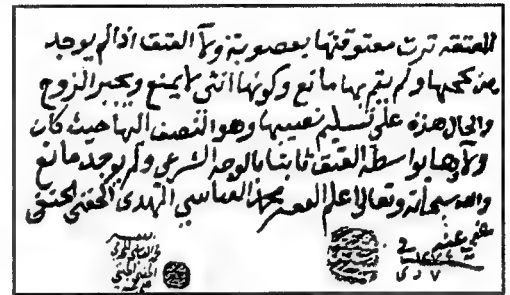 المعتقة ترث معتوقتها بعصوبة ولاء العتق اذا لم يوجد
من يحجبها ولم يقم بها مانع وكونها انثى لا يمنع ويجبر الزوج
والحال هذه على تسليم نصيبها وهو النصف اليها حيث كان
ولاؤها بواسطة العتق ثابتا بالوجه الشرعى ولم يوجد مانع
والله سبحانه وتعالى اعلم الفقير محمد العباسي المهدى الحفنى الحنفى
عفي عنه